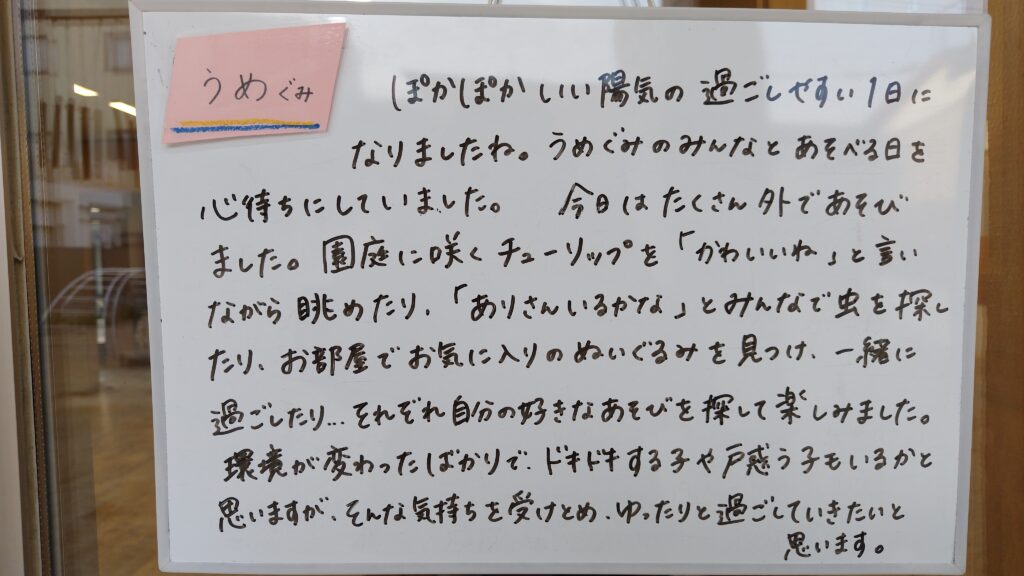 うめぐみ
ぽかぽか いい陽気の 過ごしやすい1日に
なりましたね。うめぐみのみんなと あそべる日を
心待ちにしていました。 今日は たくさん 外であそび
ました。園庭に咲く チューリップを「かわいいね」と言い
ながら 眺めたり、「ありさんいるかな」とみんなで虫を探し
たり、お部屋でお気に入りのぬいぐるみを見つけ、一緒に
過ごしたり…それぞれ自分の好きなあそびを探して楽しみました。
環境が変わったばかりで、ドキドキする子や戸惑う子もいるかと
思いますが、そんな気持ちを受けとめ、ゆったりと過ごしていきたいと
思います。